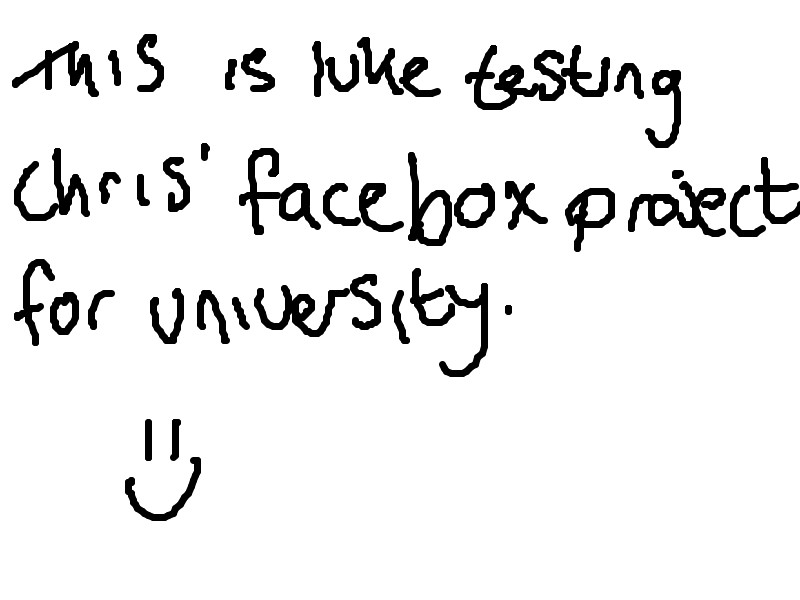 This is luke testing
Chris' facebox project
for university.